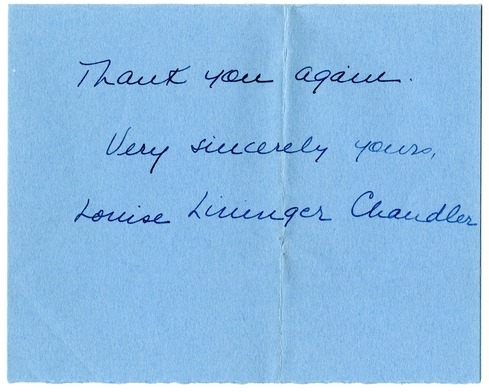 Thank you again.
Very sincerely yours,
Louise Lininger Chandler